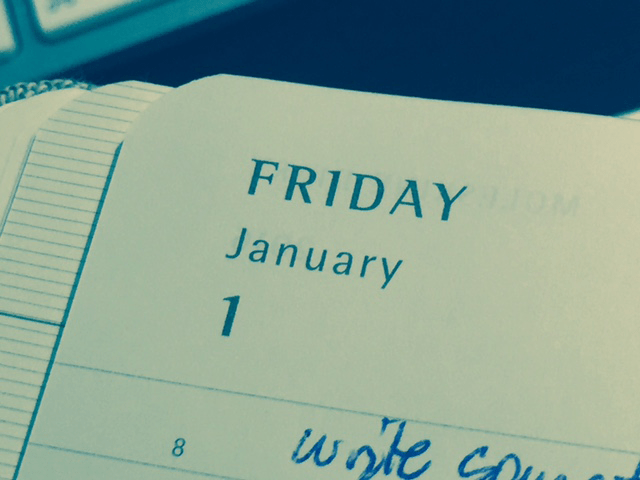 FRIDAY
January
1
8 write